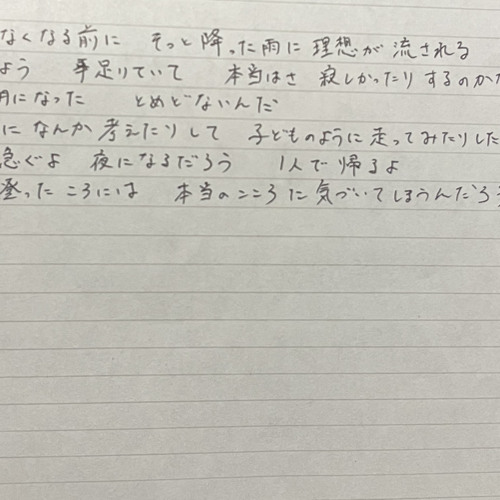 なくなる前に そっと降った雨に 理想が 流される
よう 手足りていて 本当はさ 寂しかったり するのかな
月になった とめどないんだ
になんか 考えたりして 子どものように 走ってみたりした
急ぐよ 夜になるだろう 1人で 帰るよ
登ったころには 本当のこころに 気づいてしまうんだろう